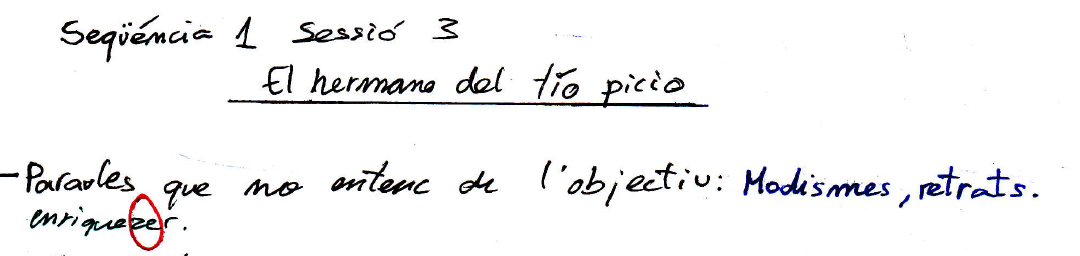 Seqüéncia 1 Sessió 3
El hermano del tío picio
- Paraules que no entenc de l'objectiu: Modismes, retrats.
enriquezer.